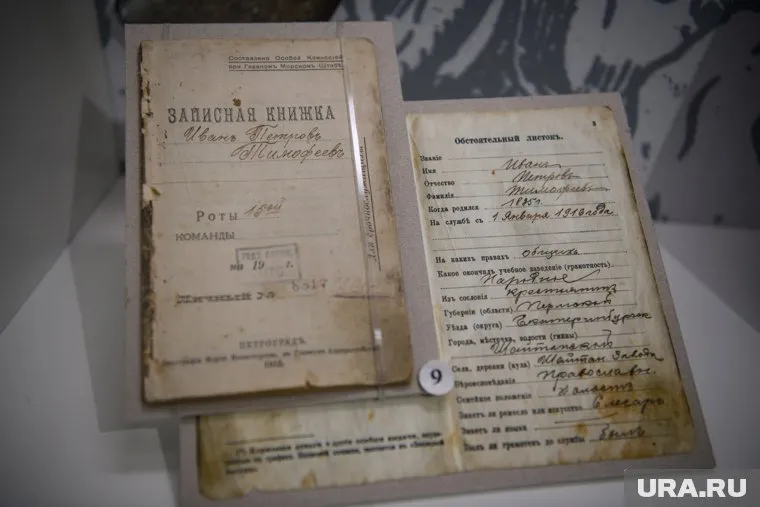 Составлена Особой Комиссiей
при Главномъ Морскомъ Штабѣ.
ЗАПИСНАЯ КНИЖКА
Иванъ Петровъ
Тимофеевъ
Роты 15ой
КОМАНДЫ
на 19 г.
8517
ПЕТРОГРАДЪ.
9
3
Обстоятельный листокъ.
Званіе
Имя Иванъ
Отчество Петровъ
Фамилія Тимофеевъ
Когда родился 1895 г.
На службѣ съ 1 Января 1916 года
съ
На какихъ правахъ общихъ
Какое окончилъ учебное заведеніе (грамотность)
Народное
Изъ сословія крестьянъ
Губерніи (области) Пермской
Уѣзда (округа) Екатеринбургск
Города, мѣстечка, волости (гмины)
Шайтанской
Села, деревни (аула) Шайтан. Завода
Вѣроисповѣданія Православн.
Семейное положеніе Холостъ
Знаетъ ли ремесло или искусство Слесарь
Знаетъ ли языки
Былъ ли грамотенъ до службы былъ
URA.RU